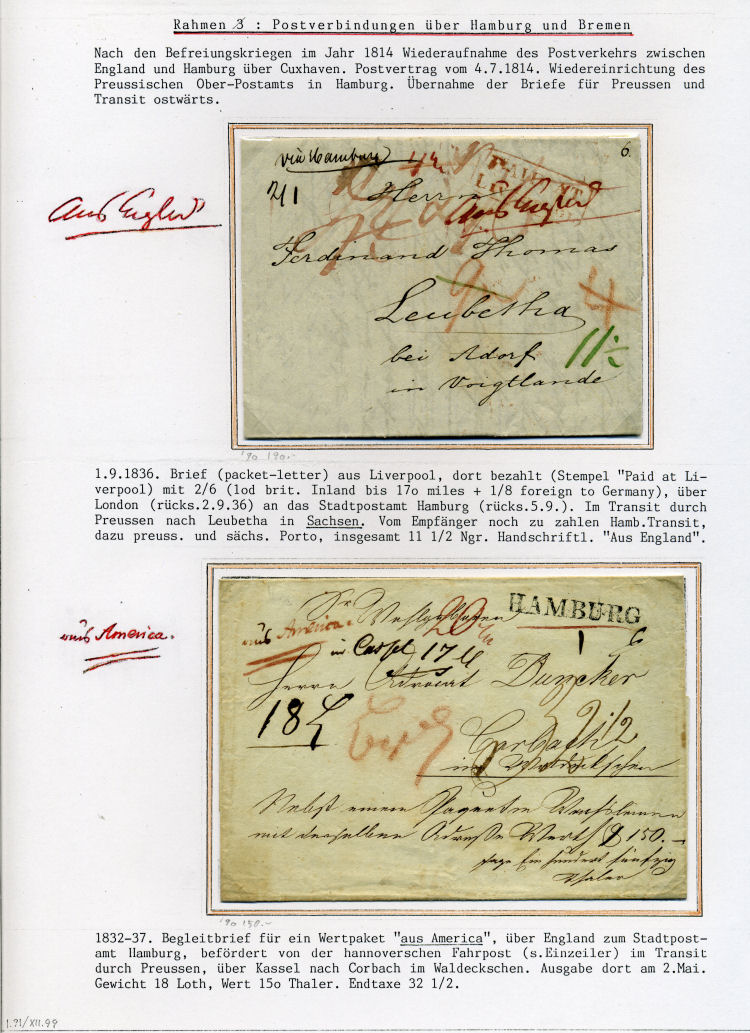 Rahmen 3 : Postverbindungen über Hamburg und Bremen
Nach den Befreiungskriegen im Jahr 1814 Wiederaufnahme des Postverkehrs zwischen
England und Hamburg über Cuxhaven. Postvertrag vom 4.7.1814. Wiedereinrichtung des
Preussischen Ober-Postamts in Hamburg. Übernahme der Briefe für Preussen und
Transit ostwärts.
via Hamburg
6.
Herrn
Aus Englnd
Aus Englnd
Ferdinand Thomas
Leubetha
4
bei Adorf
11½
in Voigtlande
'90 190.-
1.9.1836. Brief (packet-letter) aus Liverpool, dort bezahlt (Stempel "Paid at Li-
verpool) mit 2/6 (1od brit. Inland bis 17o miles + 1/8 foreign to Germany), über
London (rücks.2.9.36) an das Stadtpostamt Hamburg (rücks.5.9.). Im Transit durch
Preussen nach Leubetha in Sachsen. Vom Empfänger noch zu zahlen Hamb.Transit,
dazu preuss. und sächs. Porto, insgesamt 11 1/2 Ngr. Handschriftl. "Aus England".
HAMBURG
aus America.
aus America.
in Cassel
Herrn Advocat Duncker
18
Corbach
im Waldeckschen
Nebst einem
mit derselben Adresse Werth 150.-
sage Ein hundert fünfzig
Thaler
'90 150.-
1832-37. Begleitbrief für ein Wertpaket "aus America", über England zum Stadtpost-
amt Hamburg, befördert von der hannoverschen Fahrpost (s.Einzeiler) im Transit
durch Preussen, über Kassel nach Corbach im Waldeckschen. Ausgabe dort am 2.Mai.
Gewicht 18 Loth, Wert 15o Thaler. Endtaxe 32 1/2.
1.91/XII.99